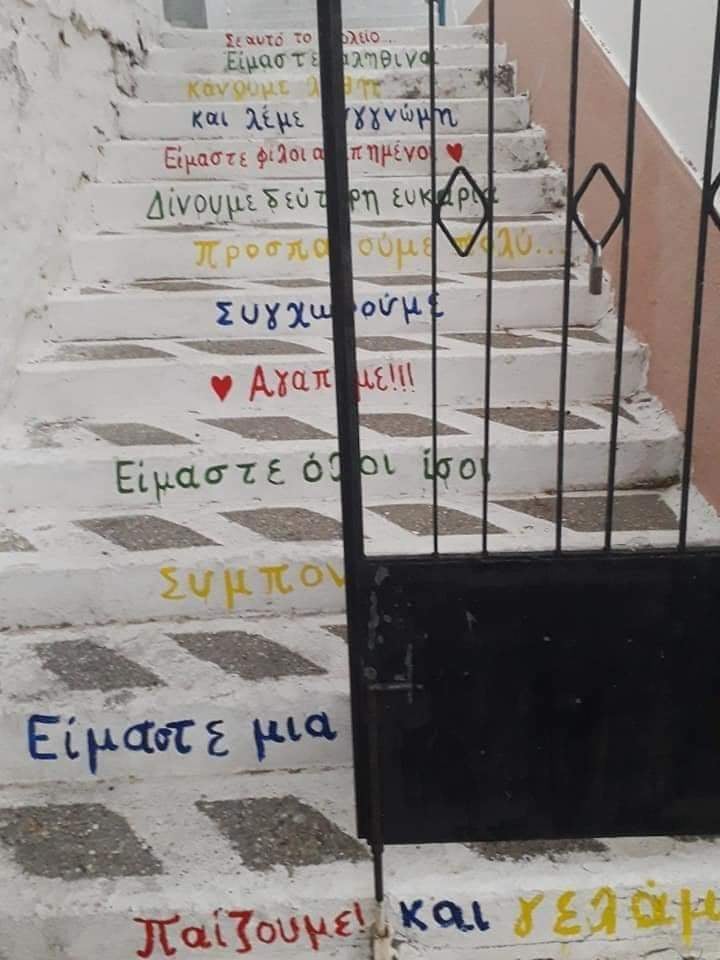 Σε αυτό το σχολείο...
Είμαστε αληθινοί
κάνουμε λάθη
και λέμε συγγνώμη
Είμαστε φίλοι αγαπημένοι ♥
Δίνουμε δεύτερη ευκαιρία
προσπαθούμε πολύ...
συγχωρούμε
♥ Αγαπάμε!!!
Είμαστε όλοι ίσοι
συμπον
Είμαστε μια
παίζουμε! και γελάμ